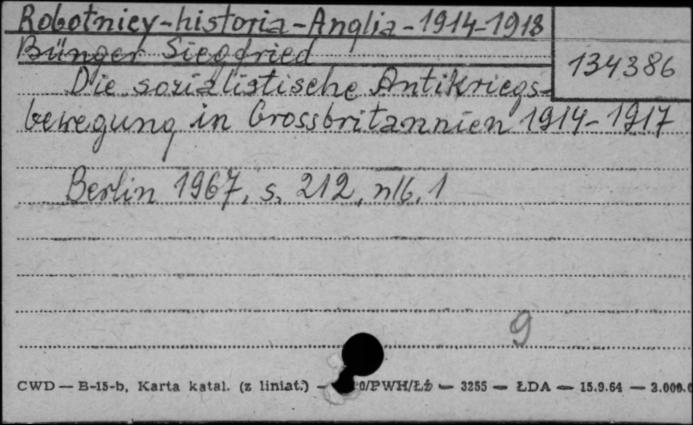 Robotnicy-historia-Anglia-1914-1918
Bünger Siegfried
134386
Die sozialistische Antikriegs-
bewegung in Grossbritannien 1914-1917
Berlin 1967, s. 212, nlb. 1
9
CWD — B-15-b, Karta katal. (z liniat.) — 20/PWH/Łż — 3255 — ŁDA — 15.9.64 — 3.000.0